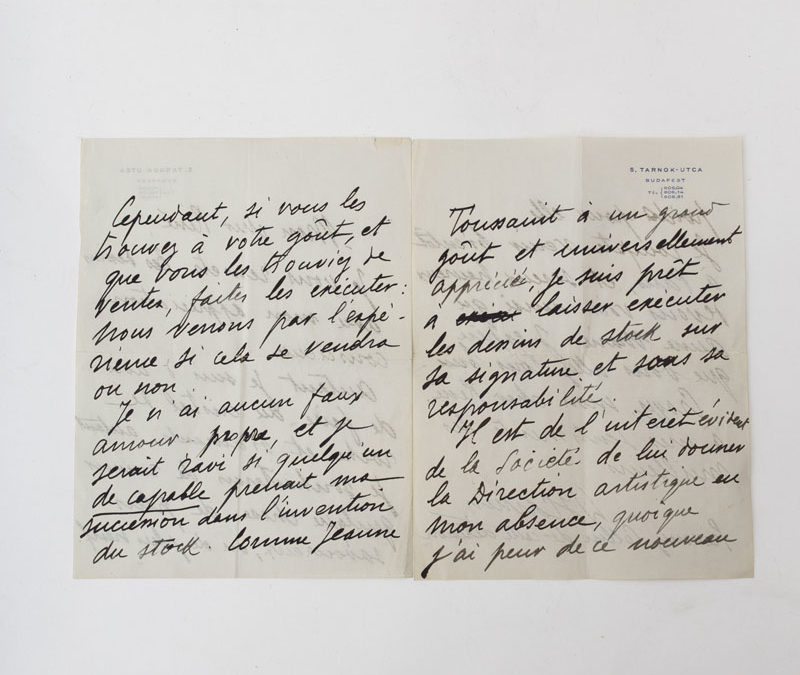 Cependant, si vous les
trouvez à votre goût, et
que vous les trouviez de
ventes, faites les exécuter:
Nous verrons par l'expé-
rience si cela se vendra
ou non.
Je n'ai aucun faux
amour propre, et je
serait ravi si quelqu'un
de capable prenait ma
succession dans l'invention
du stock. Comme Jeanne
5. TARNOK-UTCA
BUDAPEST
TEL.
Toussaint à un grand
goût et universellement
apprécié, je suis prêt
a laisser exécuter
les dessins de stock sur
sa signature et sous sa
responsabilité.
Il est de l'intérêt évident
de la Société de lui donner
la Direction artistique en
mon absence, quoique
j'ai peur de ce nouveau